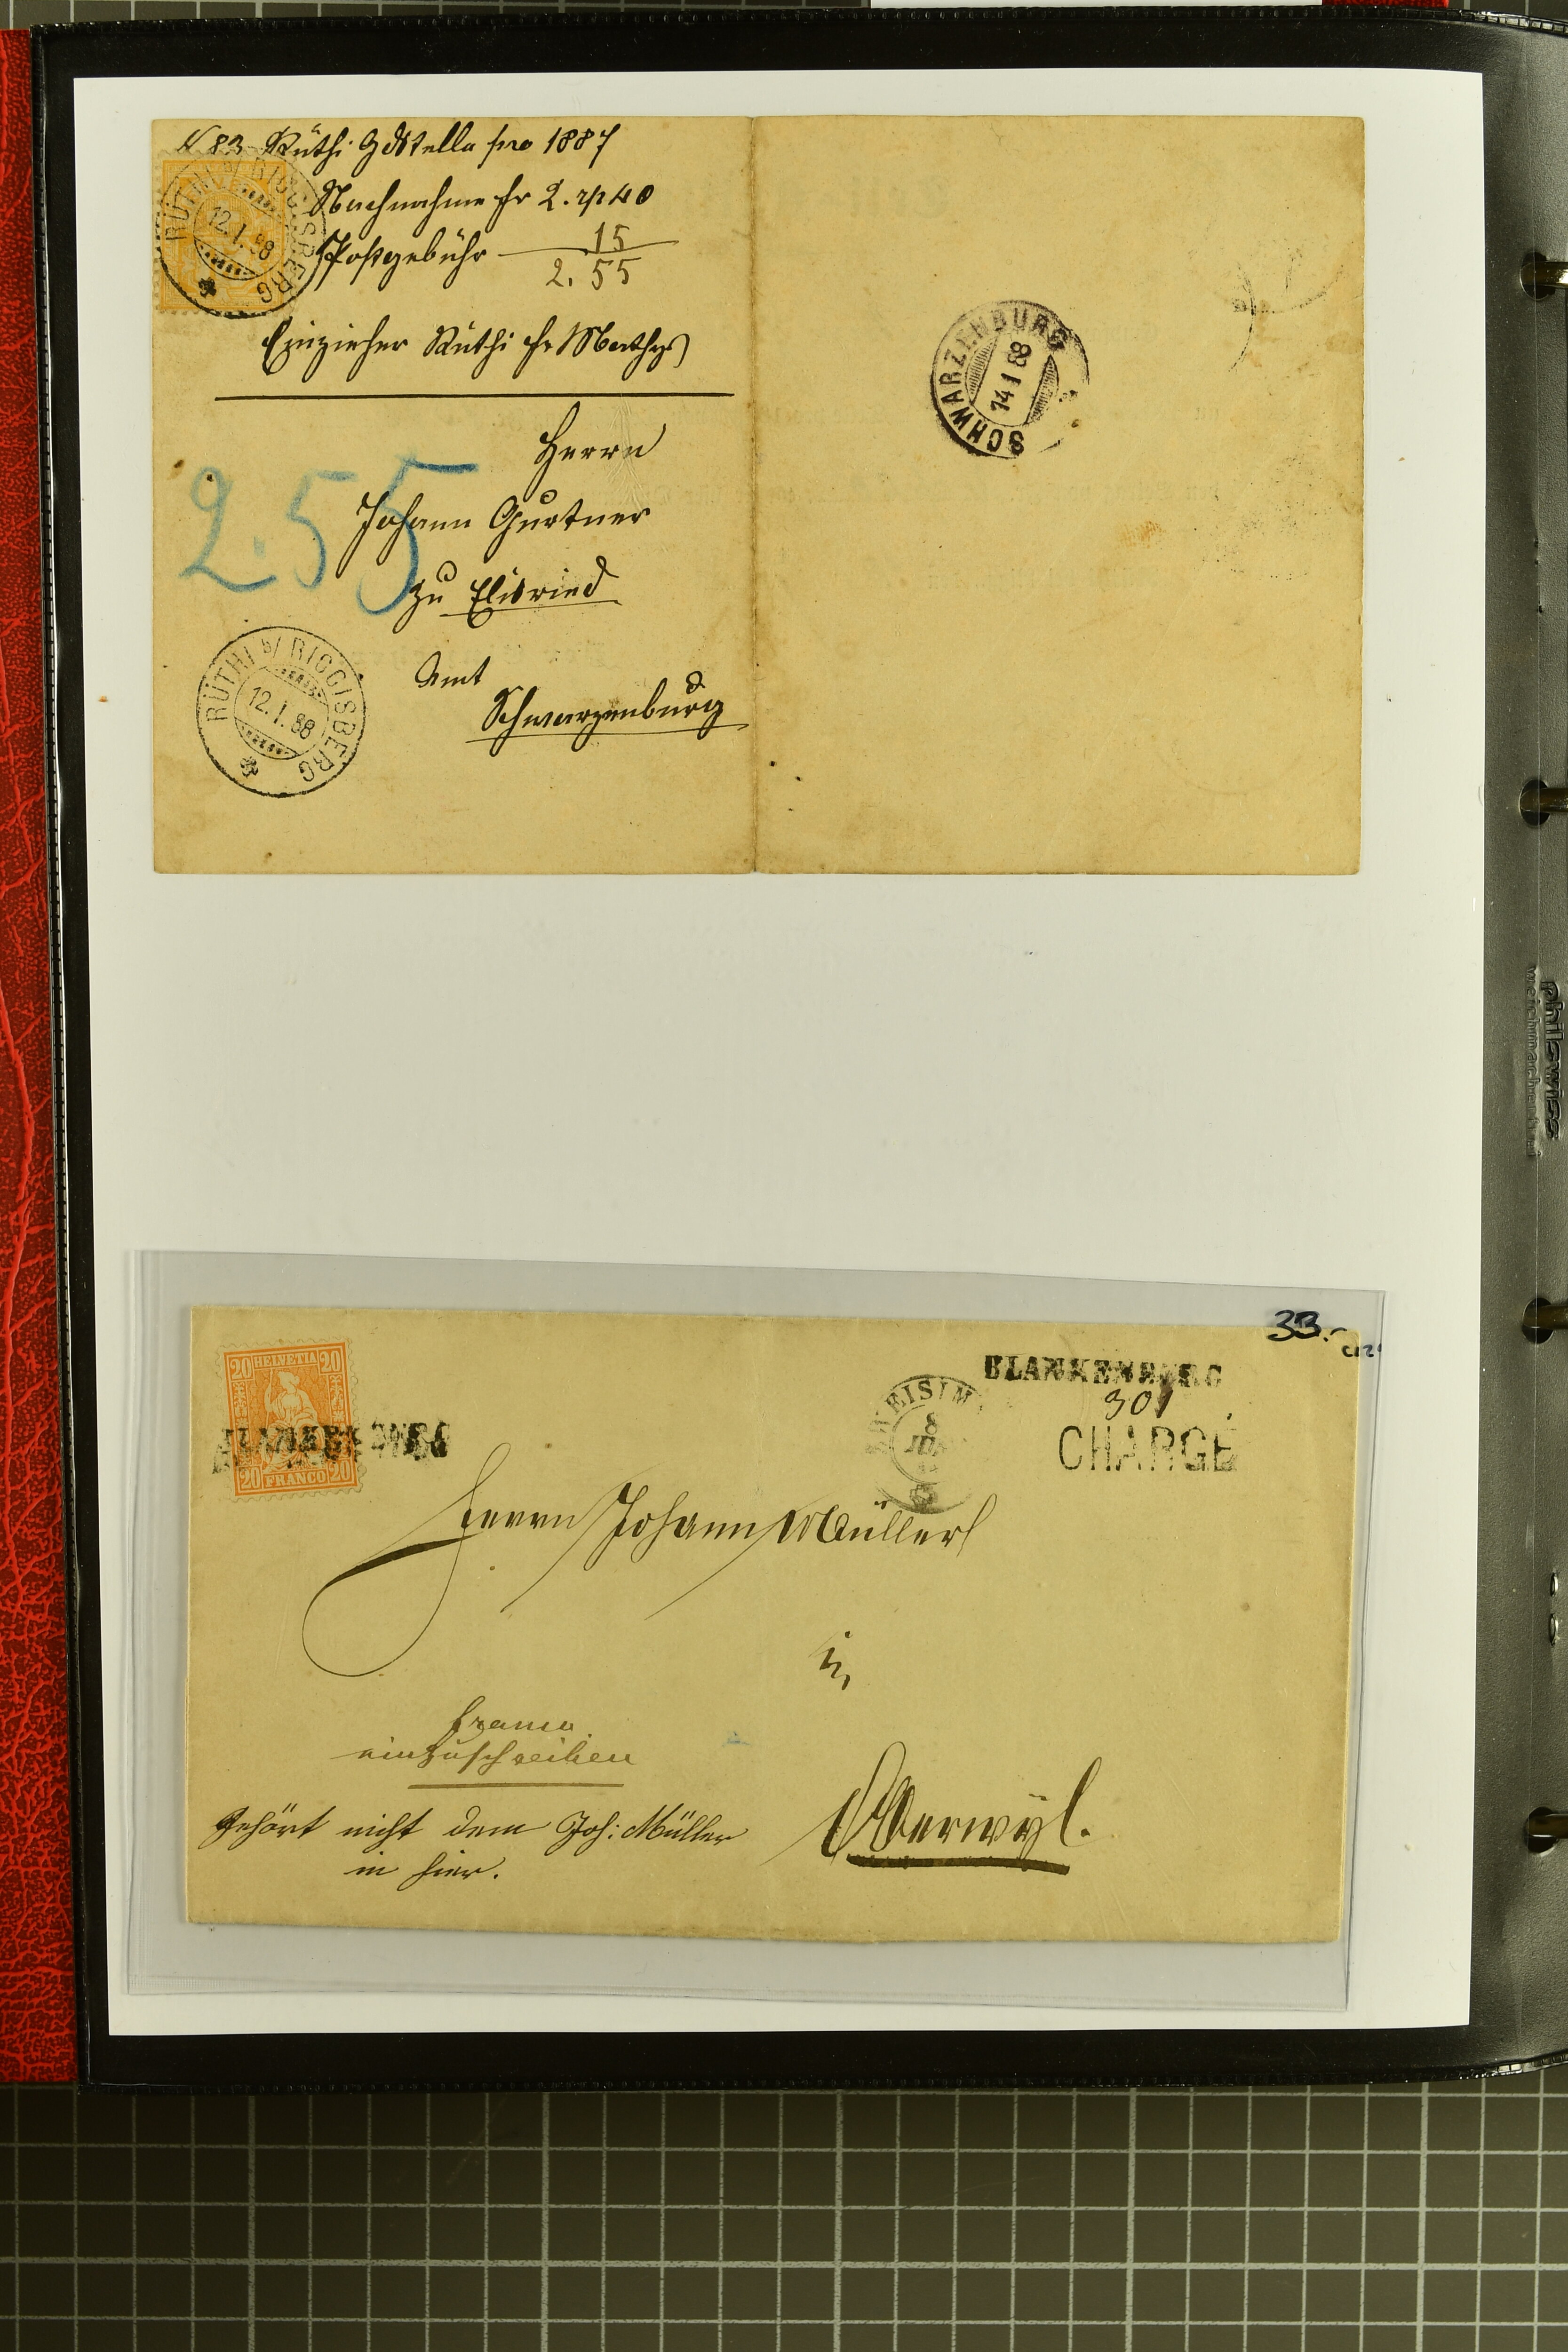 N 83 Rüthi Gdstella pro 1887
Nachnahme fr 2. rp 40
Postgebühr 15
2. 55
Einzieher Rüthi fr Mathys
RÜTHI b/ RIGGISBERG
12.I.88
Herrn
Johann Gurtner
zu Elisried
Amt
Schwarzenburg
2.55
RÜTHI b/ RIGGISBERG
12.I.88
SCHWARZENBURG
14 I 88
33.-
20 HELVETIA 20
20 FRANCO 20
BLANKENBURG
BLANKENBURG
301
CHARGÉ
ZWEISIM
8
Herrn Johann Müller
in
Oberwyl.
franco
einzuschreiben
Gehört nicht dem Joh: Müller
in hier.
philswiss